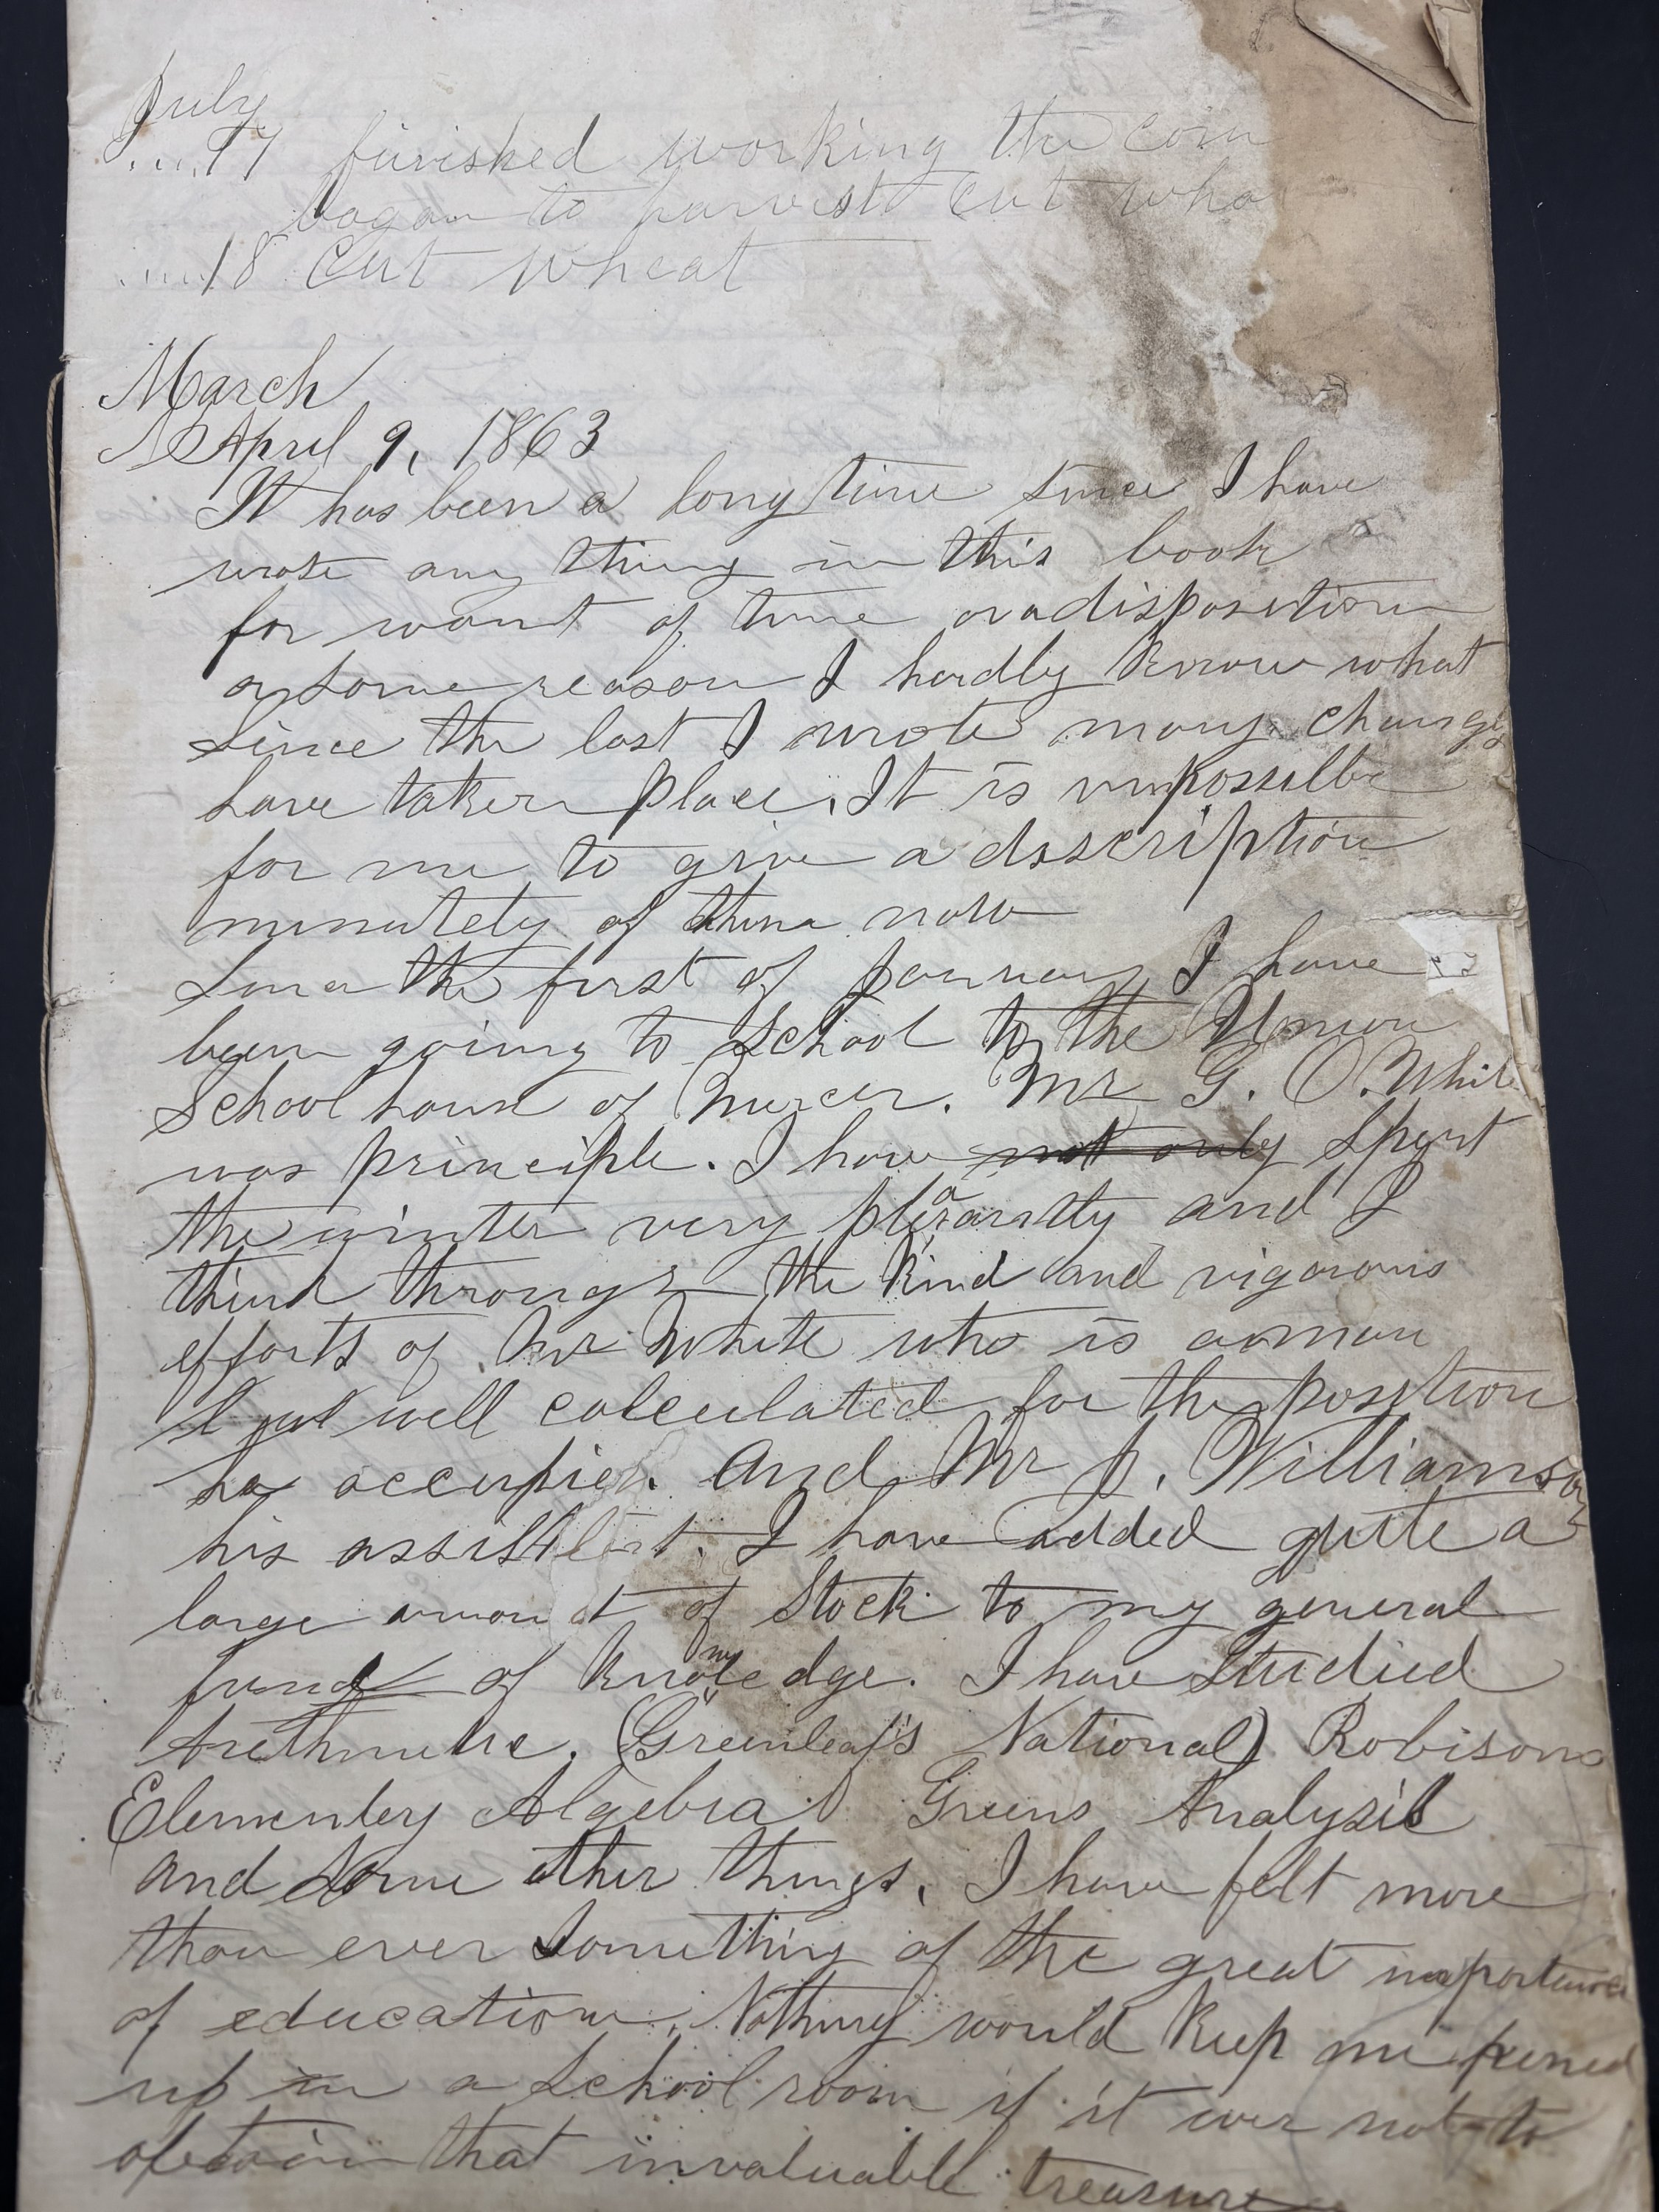 July
....17 finished working the corn
began to harvest cut whe
....18 Cut wheat
March
April 9, 1863
It has been a long time since I have
wrote any thing in this book
for want of time or a disposition
or some reason I hardly know what
Since the last I wrote many changes
have taken place. It is impossible
for me to give a description
minutely of them now
Since the first of January I have
been going to School to the Union
School house of Mercer. Mr G. O. White
was principle. I have not only spent
the winter very pleasantly and I
think through the kind and vigorous
efforts of Mr White who is a man
well calculated for the position
he occupied. And Mr J. Williamson
his assistant. I have added quite a
large amount of Stock to my general
fund of knowledge. I have Studied
Arethmetic. (Greenleaf's National) Robisons
Elementery Algebra Greens Analysis
and Some other things. I have felt more
than ever Something of the great importance
of education. Nothing would keep me pened
up in a School room if it wer not to
obtain that invaluable treasure